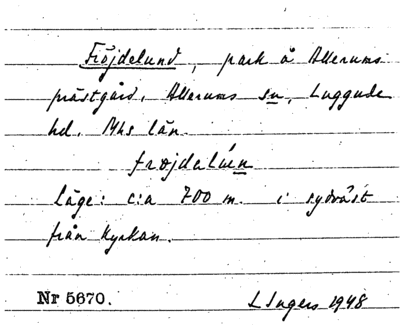 Fröjdelund, park å Allerums
prästgård, Allerums sn, Luggude
hd, Mhs län.
läge: c:a 700 m. i sydväst
från kyrkan.
Nr 5670. L Ingers 1948